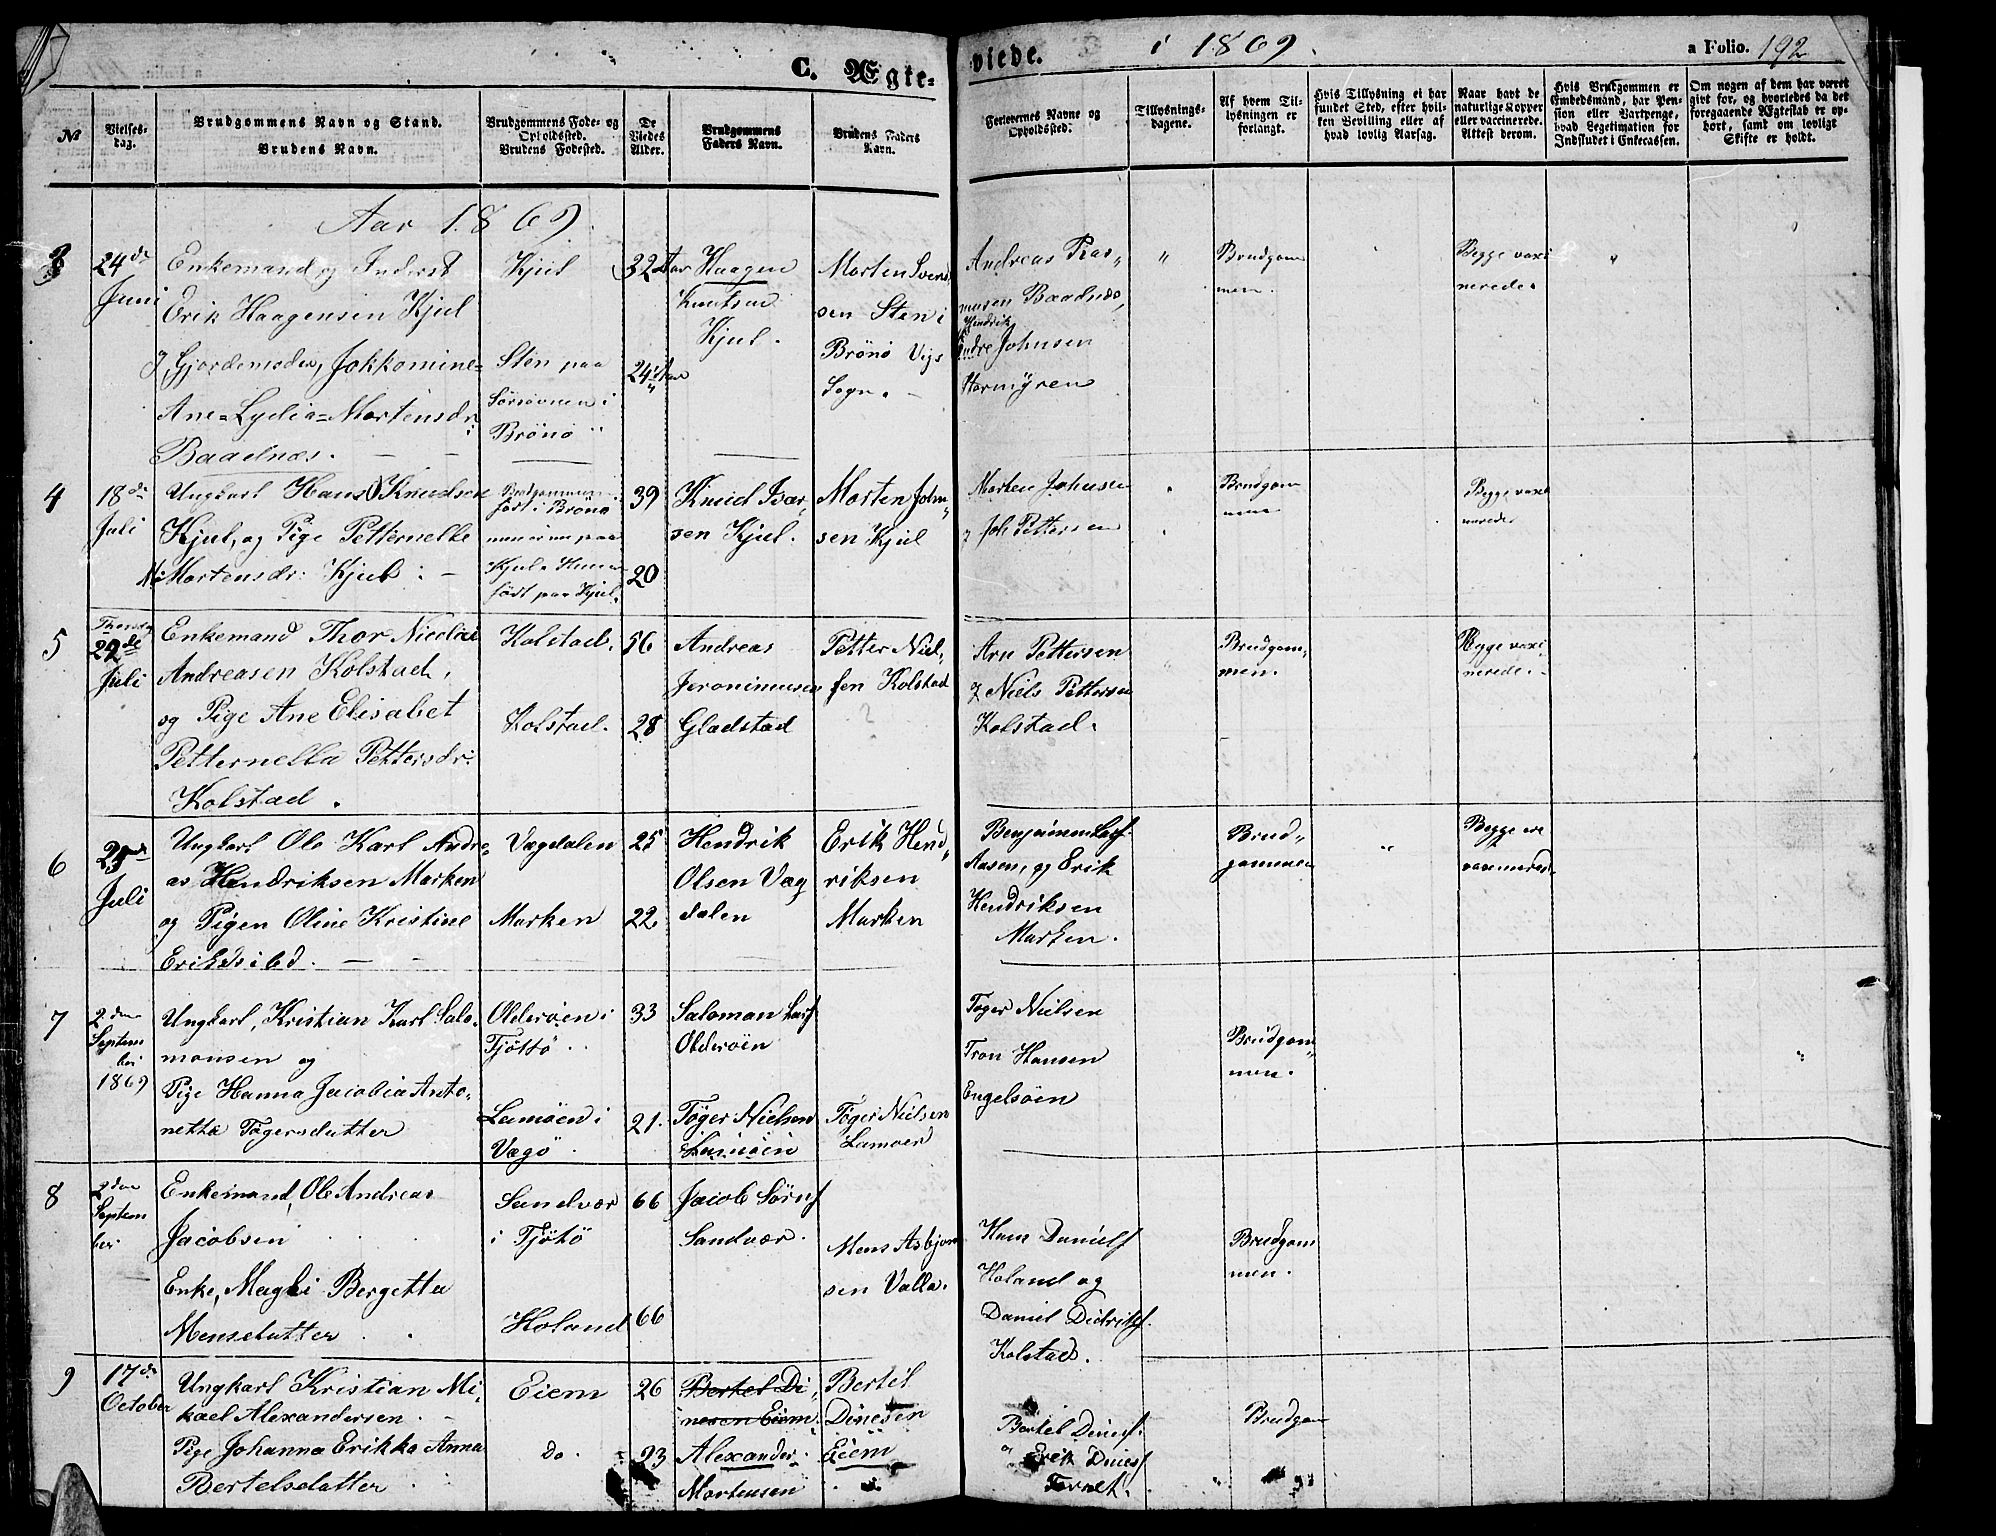 C. Ægte-
viede.
i 1869.
a Folio. 192
No
Vielses-dag.
Brudgommens Navn og Stand.
Brudens Navn.
Brudgommens Føde- og
Opholdssted.
Brudens Fødested.
De
Viedes
Alder.
Brudgommens
Faders Navn.
Brudens Faders
Navn.
Forlovernes Navne og
Opholdssted.
Tillysnings-
dagene.
Af hvem Til-
lysningen er
forlangt.
Hvis Tillysning ei har
fundet Sted, efter hvil-
ken Bevilling eller af
hvad lovlig Aarsag.
Naar havt de
naturlige Kopper
eller vaccinerede.
Attest derom.
Hvis Brudgommen er
Embedsmand, har Pen-
sion eller Vartpenge,
hvad Legitimation for
Indskudet i Enkecassen.
Om nogen af dem har været
givt for, og hvorledes da det
foregaaende Ægteskab er op-
hørt, samt om lovligt
Skifte er holdt.
Aar 1869.
3
24de
Juni
Enkemand og Inderst
Erik Haagensen Kjul
og Gjordemoder, Jokkomine-
Ane-Lydia-Mortensdr:
Baadnæs.
Kjul
Sten paa
Sørsovnen i
Brønø
32 Aar
24 Aar
Haagen
Knutsen
Kjul.
Morten Svend
sen Sten i
Brønø Vigs
Sogn.
Andreas Ras-
musen Baadnæs,
Hendrik
Andre Johnsen
Stormyren
Brudgom
men.
Begge vaxi
nerede.
4
18de
Juli
Ungkarl Hans Knudsen
Kjul, og Pige Petternelle
Mortensdr: Kjul:
Brudgommen
født i Brønø
men er nu paa
Kjul. Hun er
født paa Kjul.
39
20
Knud Isac
sen Kjul.
Morten John-
sen Kjul
Morten Johnsen
og Joh Pettersen
Brudgom
men
Begge vaxi
nerede
5
Thorsdag
22de
Juli
Enkemand Thor Nicolai
Andreasen Kolstad,
og Pige Ane Elisabet
Petternella Pettersdr:
Kolstad.
Kolstad.
Kolstad.
56
28
Andreas
Jeronimusen
Gladstad
Petter Niel-
sen Kolstad
Arn Pettersen
og Niels Pettersen
Kolstad.
Brudgom-
men.
Begge vaxi-
nerede.
6
25de
Juli
Ungkarl Ole Karl Andre-
as Hendriksen Marken
og Pigen Oline Kristine
Eriksd ibd.
Vægdalen
Marken
25
22
Hendrik
Olsen Væg
dalen
Erik Hend-
riksen
Marken
Benjamen Larss.
Aasen, og Erik
Hendriksen
Marken.
Brud-
gommen
Begge ere
vaxinered
7
2den
Septem
ber
1869
Ungkarl, Kristian Karl Salo-
monsen og
Pige Hanna Jacobia Anto-
netta Tøgersdatter
Olderøen i
Tjøttø.
Lamøen i
Vægø.
33
21.
Salomon Larss
Olderøen
Tøger Nielsen
Lamøen
Tøger Nielsen
Lamøen
Tøger Nielsen
Tron Hansen
Engelsøen
Brudgom
men.
8
2den
Septem
ber
Enkemand, Ole Andreas
Jacobsen
Enke, Magli Bergetta
Mensdatter
Sandvær
i Tjøtø
Holand
66
66
Jacob Sørns
Sandvær.
Mens Asbjørn
sen Valla.
Hans Daniels
Holand og
Daniel Didriks.
Kolstad.
Brudgom
men.
9
17de
October
Ungkarl Kristian Mi-
kael Alexandersen.
Pige Johanna Erikka Anna
Bertelsdatter
Eiem
do.
26
23
Bertel Di-
nesen Eiem.
Alexander
Mortensen
Bertel
Dinesen
Eiem
Bertel Diness.
og Erik Diness
Tornet.
Brudgom